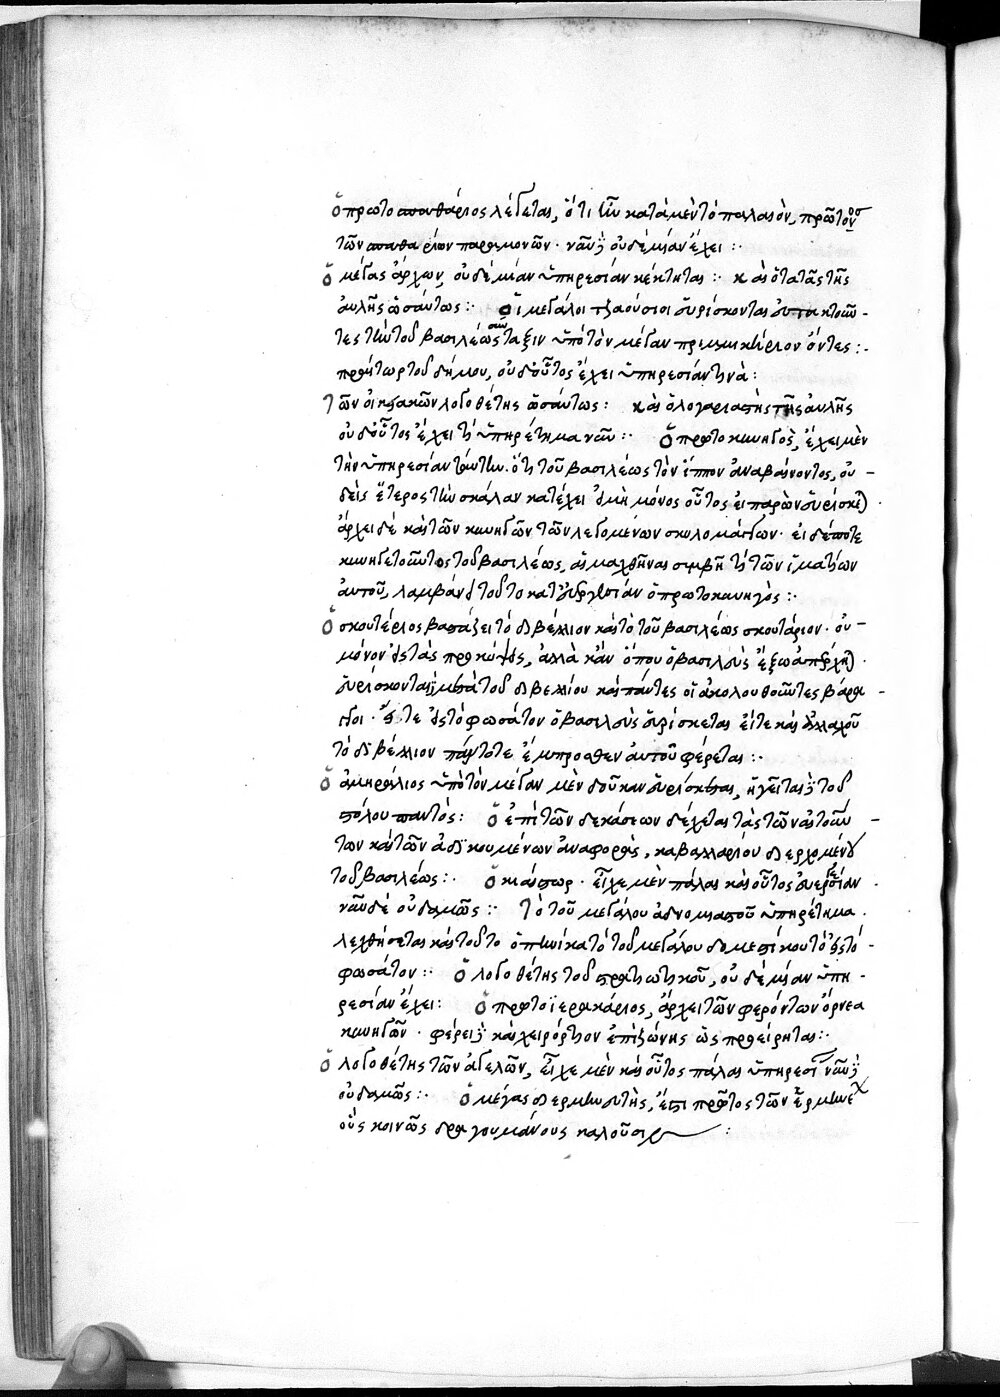 ὁ πρωτοσπαθάριος λέγεται, ὅτι ἦν κατὰ μὲν τὸ παλαιὸν, πρῶτος
τῶν σπαθαρίων παραμονῶν· νῦν δὲ οὐδεμίαν ἔχει :·
ὁ μέγας ἄρχων, οὐδεμίαν ὑπηρεσίαν κέκτηται :· καὶ ὁ τατᾶς τῆς
αὐλῆς ὡσαύτως :· οἱ μεγάλοι τζαούσιοι εὑρίσκονται εὐτακτοῦν-
τες τὴν τοῦ βασιλέως σύνταξιν ὑπὸ τὸν μέγαν πριμμικήριον ὄντες :-
πραίτωρ τοῦ δήμου, οὐδ' οὗτος ἔχει ὑπηρεσίαν τινὰ :
τῶν οἰκειακῶν λογοθέτης ὡσαύτως : καὶ ὁ λογαριαστὴς τῆς αὐλῆς
οὐδ' οὗτος ἔχει τι ὑπηρέτημα νῦν :· ὁ πρωτοκυνηγὸς, ἔχει μὲν
τὴν ὑπηρεσίαν ταύτην. ὅτι τοῦ βασιλέως τὸν ἵππον ἀναβαίνοντος, οὐ-
δεὶς ἕτερος τὴν σκάλαν κατέχει εἰ μὴ μόνος οὗτος εἰ παρὼν εὑρίσκεται·
ἄρχει δὲ καὶ τῶν κυνηγῶν τῶν λεγομένων σκυλομάγγων· εἰ δέ ποτε
κυνηγετοῦντος τοῦ βασιλέως, αἱμαχθῆναι συμβῇ τι τῶν ἱματίων
αὐτοῦ, λαμβάνει τοῦτο κατ' εὐεργεσίαν ὁ πρωτοκυνηγὸς :·
ὁ σκουτέριος βαστάζει τὸ διβέλλιον καὶ τὸ τοῦ βασιλέως σκουτάριον· οὐ-
μόνον εἰς τὰς προκύψεις, ἀλλὰ κἂν ὅπου ὁ βασιλεὺς ἔξω ἀπέρχηται·
εὑρίσκονται μετὰ τοῦ διβελλίου καὶ πάντες οἱ ἀκολουθοῦντες βάραγ-
γοι· εἴτε εἰς τὸ φωσάτον ὁ βασιλεὺς εὑρίσκεται εἴτε καὶ ἀλλαχοῦ
τὸ διβέλλιον πάντοτε ἔμπροσθεν αὐτοῦ φέρεται :·
ὁ ἀμηράλιος ὑπὸ τὸν μέγαν μὲν δοῦκαν εὑρίσκεται, ἡγεῖται δὲ τοῦ
στόλου παντὸς : ὁ ἐπὶ τῶν δεήσεων δέχεται τὰς τῶν αἰτούν-
των καὶ τῶν ἀδικουμένων ἀναφορὰς, καβαλλαρίου διερχομένου
τοῦ βασιλέως :· ὁ κυαίστωρ· εἶχε μὲν πάλαι καὶ οὗτος ὑπηρεσίαν·
νῦν δὲ οὐδαμῶς :· τὸ τοῦ μεγάλου ἀδνουμιαστοῦ ὑπηρέτημα·
λεχθήσεται καὶ τοῦτο ὁπηνίκα τὸ τοῦ μεγάλου δομεστίκου τὸ εἰς τὸ-
φωσάτον :· ὁ λογοθέτης τοῦ στρατιωτικοῦ, οὐδεμίαν ὑπη-
ρεσίαν ἔχει : ὁ πρωτοϊερακάριος, ἄρχει τῶν φερόντων ὄρνεα
κυνηγῶν· φέρει δὲ καὶ χειρόρτιον ἐπὶ ζώνης ὡς προείρηται :·
ὁ λογοθέτης τῶν ἀγελῶν, εἶχε μὲν καὶ οὗτος πάλαι ὑπηρεσίαν νῦν δὲ
οὐδαμῶς :· ὁ μέγας διερμηνευτὴς, ἔστι πρῶτος τῶν ἑρμηνέων
οὓς κοινῶς δραγουμάνους καλοῦσιν :